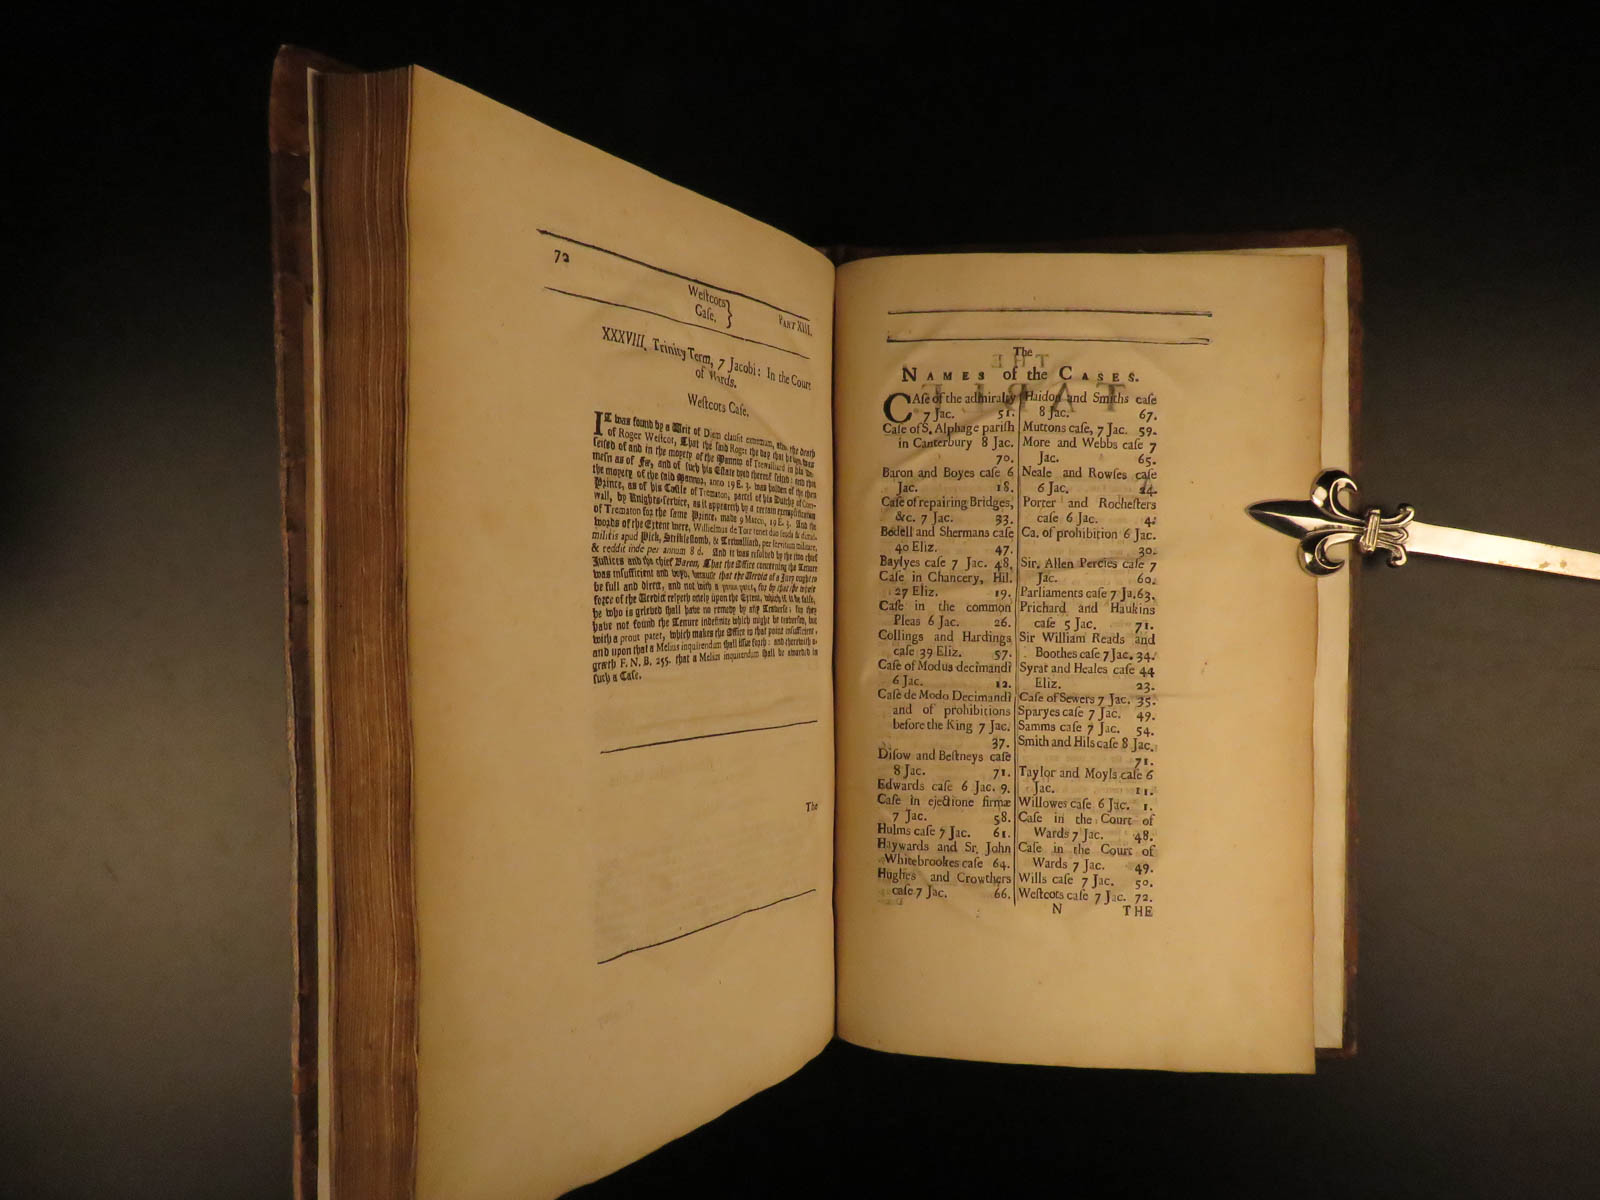 72
Weſtcots
Caſe.
PART XIII.
XXXVIII. Trinity Term, 7 Jacobi: In the Court
of Wards.
Weſtcots Caſe.
IT was found by a Writ of Diem clauſit extremum, after the death
of Roger Weſtcot, That the ſaid Roger the day that he dyed was
ſeiſed of and in the moyety of the Mannor of Trewalliard in his De-
meſn as of Fee, and of ſuch his Eſtate dyed thereof ſeiſed: and that
the moyety of the ſaid Mannor, anno 19 E. 3. was holden of the then
Prince, as of his Caſtle of Trematon, parcel of his Dutchy of Corn-
wall, by Knights-ſervice, as it appeareth by a certain exemplification
of Trematon for the ſame Prince, made 9 March, 19 E. 3. And the
words of the Extent were, Willielmus de Torr tenet duo feoda &
militis apud Pick, Striklestomb, & Trewalliard, per ſervitium militare,
& reddit inde per annum 8 d. And it was reſolved by the two chief
Juſtices and the chief Baron, That the Office concerning the Tenure
was inſufficient and void, becauſe that the Verdict of a Jury ought to
be full and direct, and not with a prout patet, for by that the whole
force of the Verdict relyeth onely upon the Extent, which if it be falſe,
he who is grieved ſhall have no remedy by any Traverſe: for they
have not found the Tenure indefinite which might be traverſed, but
with a prout patet, which makes the Office in that point inſufficient,
and upon that a Melius inquirendum ſhall iſſue forth: and therewith a-
greeth F. N. B. 255. that a Melius inquirendum ſhall be awarded in
ſuch a Caſe.
The
The
NAMES of the CASES.
CAſe of the admiralty
7 Jac. 51.
Caſe of S. Alphage pariſh
in Canterbury 8 Jac.
70.
Baron and Boyes caſe 6
Jac. 18.
Caſe of repairing Bridges,
&c. 7 Jac. 33.
Bedell and Shermans caſe
40 Eliz. 47.
Bayſyes caſe 7 Jac. 48.
Caſe in Chancery, Hil.
27 Eliz. 19.
Caſe in the common
Pleas 6 Jac. 26.
Collings and Hardings
caſe 39 Eliz. 57.
Caſe of Modus decimandi
6 Jac. 12.
Caſe de Modo Decimandi
and of prohibitions
before the King 7 Jac.
37.
Diſow and Beſtneys caſe
8 Jac. 71.
Edwards caſe 6 Jac. 9.
Caſe in ejectione firmæ
7 Jac. 58.
Hulms caſe 7 Jac. 61.
Haywards and Sr. John
Whitebrookes caſe 64.
Hughes and Crowthers
caſe 7 Jac. 66.
Haidon and Smiths caſe
8 Jac. 67.
Muttons caſe, 7 Jac. 59.
More and Webbs caſe 7
Jac. 65.
Neale and Rowſes caſe
6 Jac. 24.
Porter and Rocheſters
caſe 6 Jac. 4.
Ca. of prohibition 6 Jac.
30.
Sir. Allen Percies caſe 7
Jac. 60.
Parliaments caſe 7 Ja. 63.
Prichard and Haukins
caſe 5 Jac. 71.
Sir William Reads and
Boothes caſe 7 Jac. 34.
Syrat and Heales caſe 44
Eliz. 23.
Caſe of Sewers 7 Jac. 35.
Sparyes caſe 7 Jac. 49.
Samms caſe 7 Jac. 54.
Smith and Hils caſe 8 Jac.
71.
Taylor and Moyls caſe 6
Jac. 11.
Willowes caſe 6 Jac. 1.
Caſe in the Court of
Wards 7 Jac. 48.
Caſe in the Court of
Wards 7 Jac. 49.
Wills caſe 7 Jac. 50.
Weſtcots caſe 7 Jac. 72.
N THE